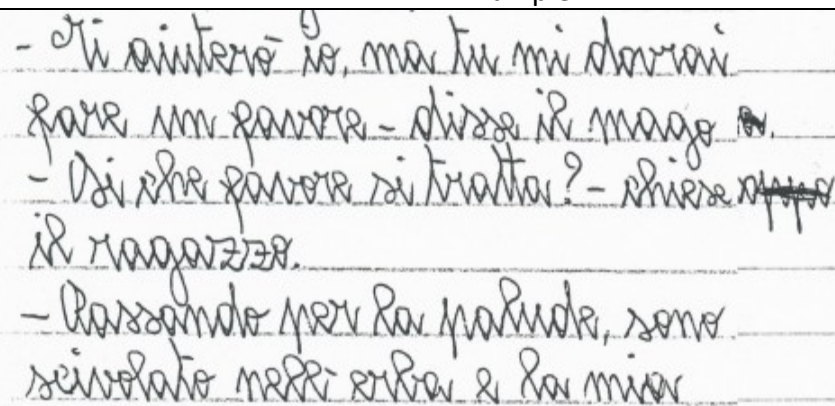 - Ti aiuterò io, ma tu mi dovrai
fare un favore - disse il mago
- Di che favore si tratta? - chiese
il ragazzo.
- Passando per la palude, sono
scivolato nell'erba e la mia